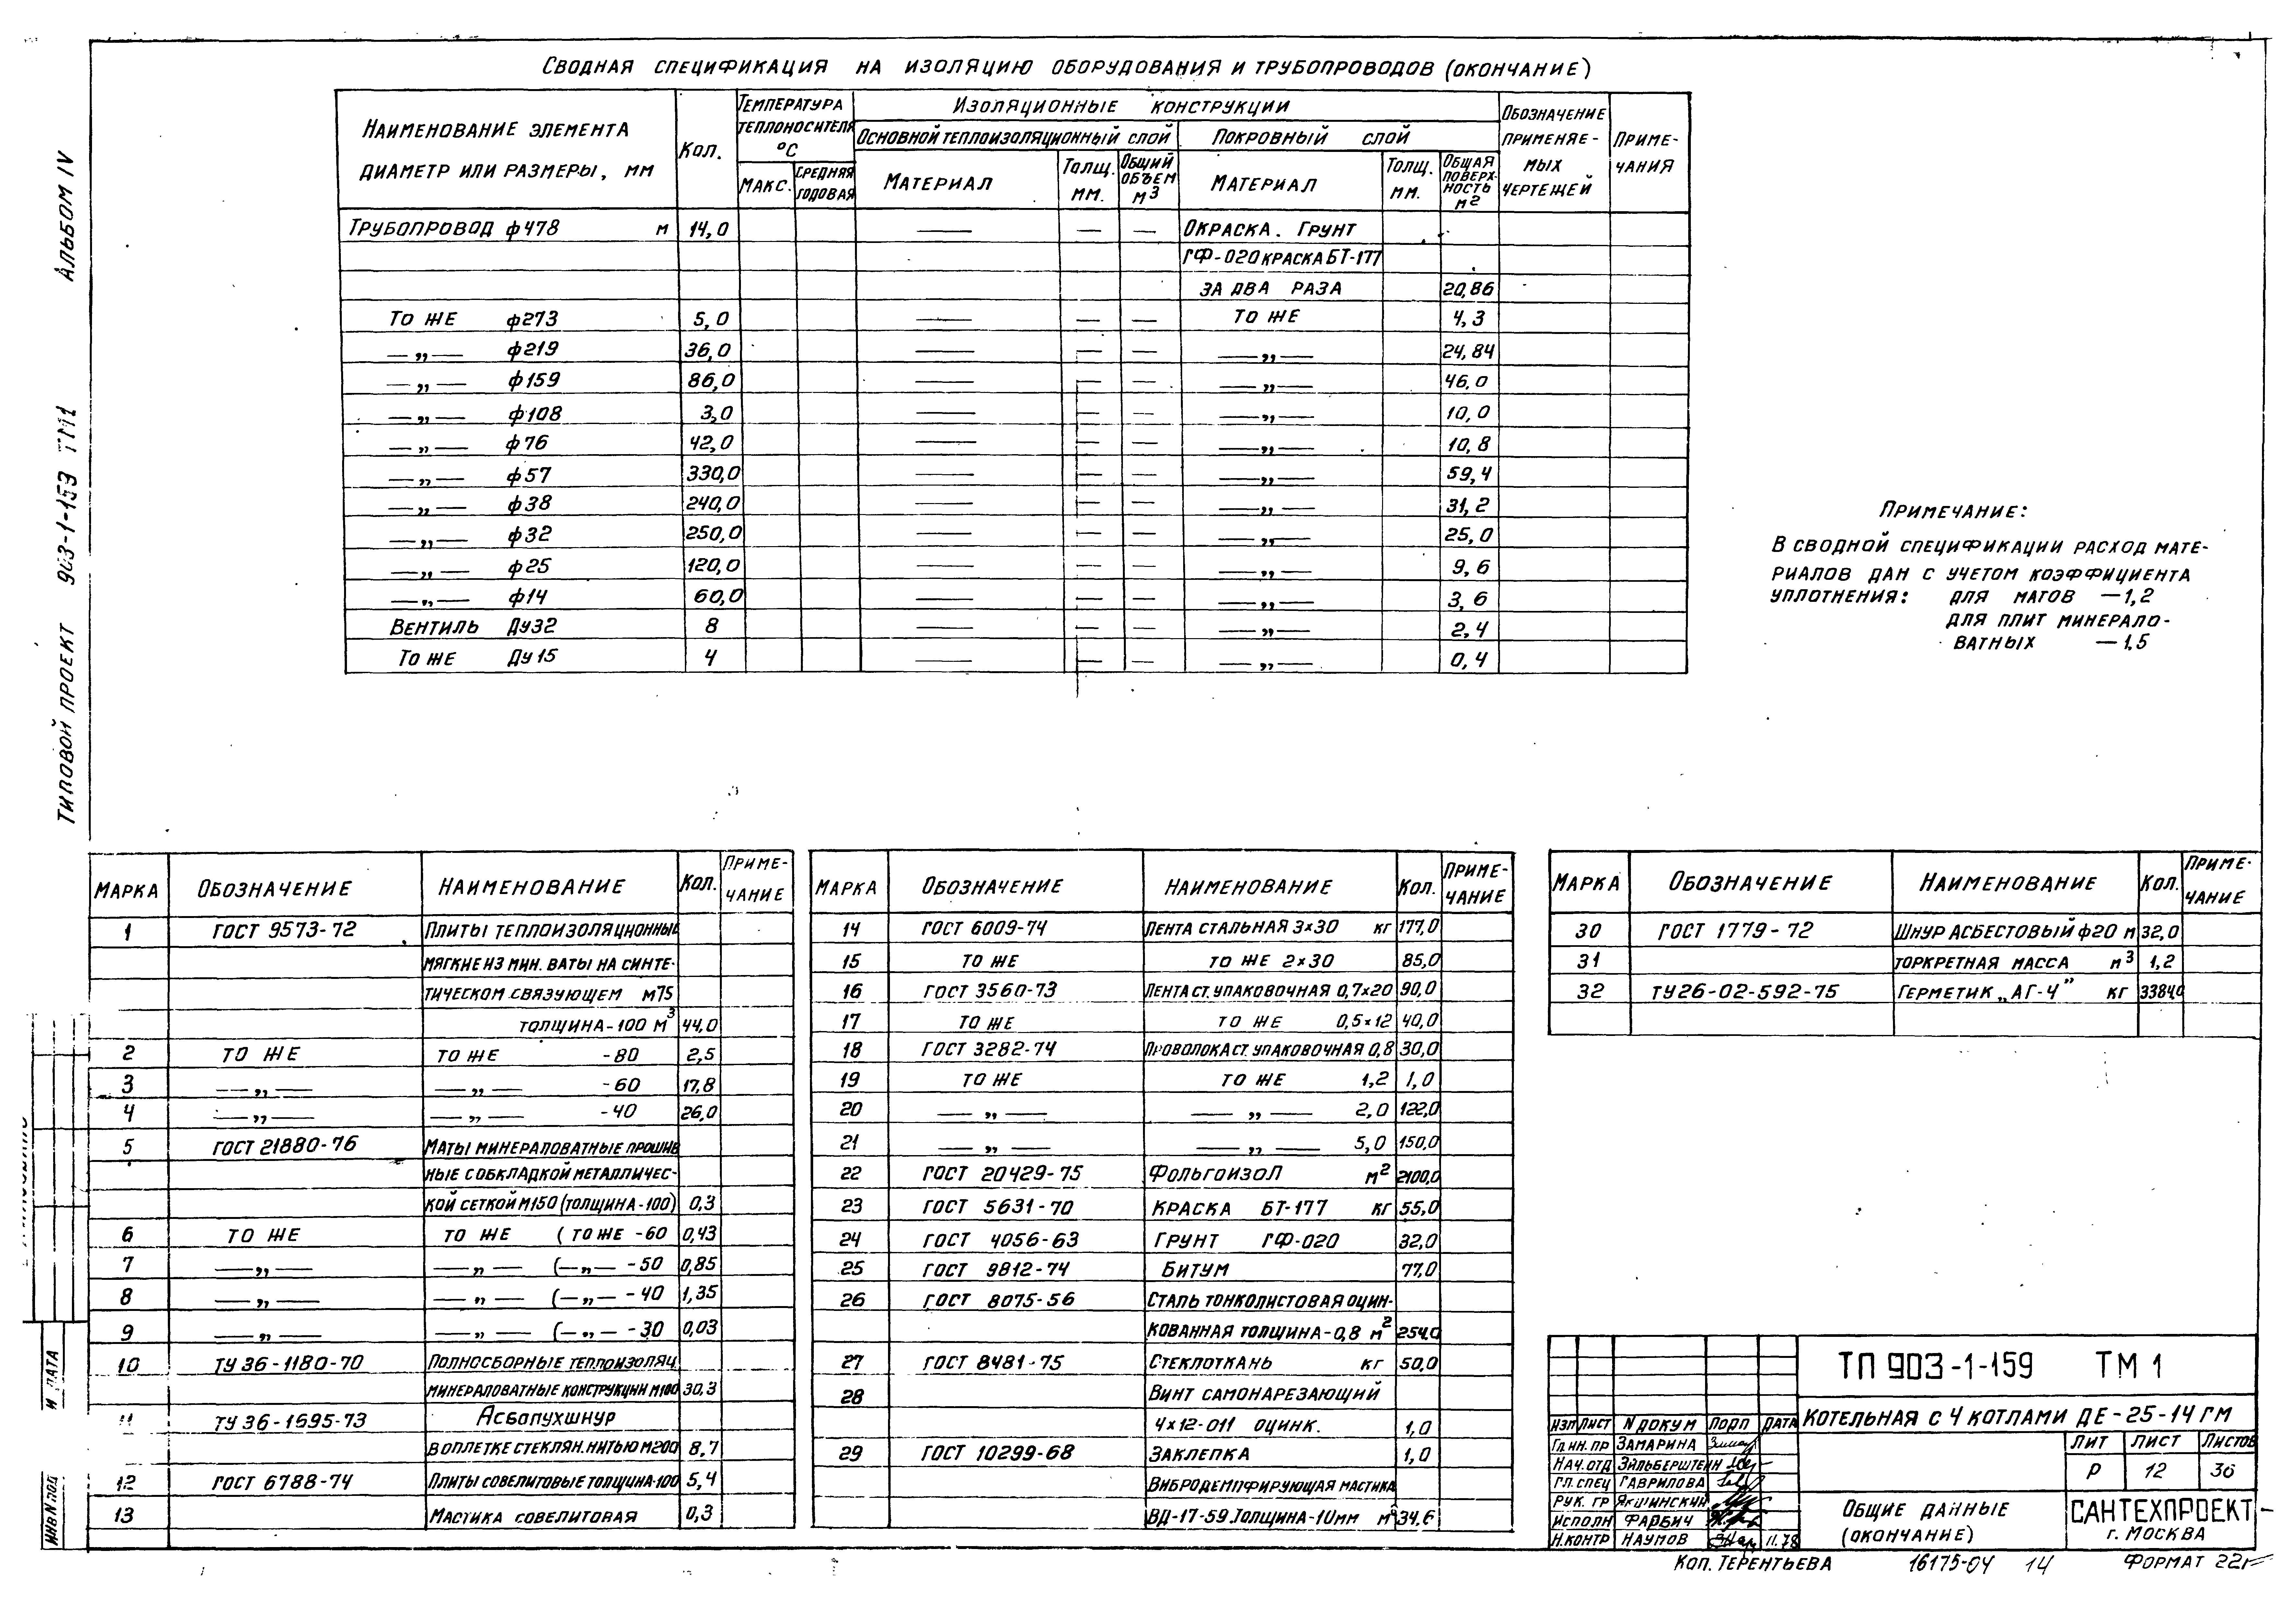 Сводная спецификация на изоляцию оборудования и трубопроводов (окончание)
Наименование элемента диаметр или размеры, мм | Кол. | Температура теплоносителя °C | Изоляционные конструкции | Обозначение применяемых чертежей | Примечания
Макс. | Средняя годовая | Основной теплоизоляционный слой | Покровный слой
Материал | Толщ. мм. | Общий объем м3 | Материал | Толщ. мм. | Общая поверхность м2
Трубопровод ф478 м 14,0 — — — Окраска. Грунт
ГФ-020 краска БТ-177
за два раза 20,86
То же ф273 5,0 — — — То же 4,3
—„— ф219 36,0 — — — —„— 24,84
—„— ф159 86,0 — — — —„— 46,0
—„— ф108 3,0 — — — —„— 10,0
—„— ф76 42,0 — — — —„— 10,8
—„— ф57 330,0 — — — —„— 59,4
—„— ф38 240,0 — — — —„— 31,2
—„— ф32 250,0 — — — —„— 25,0
—„— ф25 120,0 — — — —„— 9,6
—„— ф14 60,0 — — — —„— 3,6
Вентиль Ду32 8 — — — —„— 2,4
То же Ду15 4 — — — —„— 0,4
Примечание:
В сводной спецификации расход мате-
риалов дан с учетом коэффициента
уплотнения: для матов —1,2
для плит минерало-
ватных —1,5
Альбом IV
Типовой проект 903-1-159 ТМ1
Марка | Обозначение | Наименование | Кол. | Приме-чание
1 ГОСТ 9573-72 Плиты теплоизоляционные
мягкие из мин. ваты на синте-
тическом связующем М75
толщина-100 м3 44,0
2 То же То же -80 2,5
3 —„— —„— -60 17,8
4 —„— —„— -40 26,0
5 ГОСТ 21880-76 Маты минераловатные прошив
ные с обкладкой металличес-
кой сеткой М150 (толщина-100) 0,3
6 То же То же (То же -60 0,43
7 —„— —„— (—„— -50 0,85
8 —„— —„— (—„— -40 1,35
9 —„— —„— (—„— -30 0,03
10 ТУ 36-1180-70 Полносборные теплоизоляц
минераловатные конструкции М100 30,3
11 ТУ 36-1695-73 Асбопухшнур
в оплетке стеклян. нитью М200 8,7
12 ГОСТ 6788-74 Плиты совелитовые толщина-100 5,4
13 Мастика совелитовая 0,3
Марка | Обозначение | Наименование | Кол. | Приме-чание
14 ГОСТ 6009-74 Лента стальная 3×30 кг 177,0
15 То же То же 2×30 85,0
16 ГОСТ 3560-73 Лента ст. упаковочная 0,7×20 90,0
17 То же То же 0,5×12 40,0
18 ГОСТ 3282-74 Проволока ст. упаковочная 0,8 30,0
19 То же То же 1,2 1,0
20 —„— —„— 2,0 122,0
21 —„— —„— 5,0 150,0
22 ГОСТ 20429-75 Фольгоизол м2 2100,0
23 ГОСТ 5631-70 Краска БТ-177 кг 55,0
24 ГОСТ 4056-63 Грунт ГФ-020 32,0
25 ГОСТ 9812-74 Битум 77,0
26 ГОСТ 8075-56 Сталь тонколистовая оцин-
кованная толщина-0,8 м2 254,0
27 ГОСТ 8481-75 Стеклоткань кг 50,0
28 Винт самонарезающий
4×12-011 оцинк. 1,0
29 ГОСТ 10299-68 Заклепка 1,0
Вибродемпфирующая мастика
ВД-17-59 толщина-10мм м2 34,6
Марка | Обозначение | Наименование | Кол. | Приме-чание
30 ГОСТ 1779-72 Шнур асбестовый ф20 м 32,0
31 Торкретная масса м3 1,2
32 ТУ26-02-592-75 Герметик „АГ-4" кг 3384,0
И дата
Инв N под
ТП 903-1-159 ТМ 1
Изм Лист N докум Подп Дата
Котельная с 4 котлами ДЕ-25-14 ГМ
Гл. ин. пр Замарина
Нач. отд Зильберштейн
Гл. спец Гаврилова
Рук. гр Якшинский
Исполн Фарбич
Н. контр Наумов 11.78
Лит Лист Листов
Р 12 36
Общие данные
(окончание)
САНТЕХПРОЕКТ
г. Москва
Коп. Терентьева 16175-04 14 Формат 22г